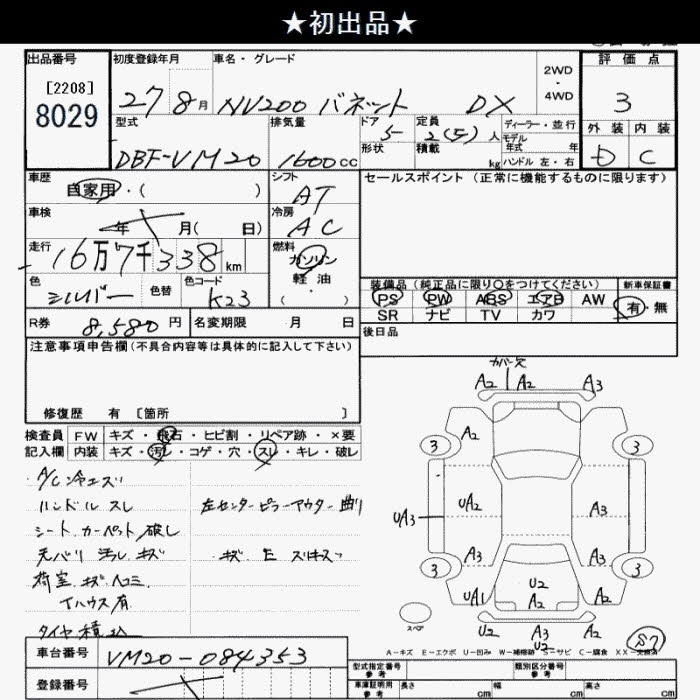 ★初出品★
出品番号
[2208]
8029
初度登録年月
27 8月
車名・グレード
NV200 バネット DX
2WD
・
4WD
評価点
3
外装 内装
D C
型式
DBF-VM20
排気量
1600cc
ドア
5
形状
定員
2(5)人
積載
kg
ディーラー・並行
モデル
年式 年
ハンドル 左・右
車歴
自家用・( )
シフト
AT
セールスポイント (正常に機能するものに限ります)
車検
年 月( 日)
冷房
AC
走行
16万7千338km
燃料
ガソリン
軽油
( ・ )
色
シルバー
色替
色コード
K23
装備品 (純正品に限り○をつけてください)
PS PW ABS エアB AW
SR ナビ TV カワ
新車保証書
有・無
R券 8,580円
名変期限 月 日
後日品
注意事項申告欄(不具合内容等は具体的に記入して下さい)
修復歴 有 [箇所 ]
検査員 FW キズ・飛石・ヒビ割・リペア跡・×要
記入欄 内装 キズ・汚レ・コゲ・穴・スレ・キレ・破レ
A/C冷エズ
ハンドル スレ
シート.カーペット破レ
左センターピラーアウター曲り
内バリ 汚レ キズ
荷室.キズ ヘコミ
イハウス有
タイヤ積込
カバー欠
A2 A2 A3
3 A2 3
UA3 UA2 A3
A3 A3
3 3
UA1 U2 A2
A2
U2 A3 A2
U2
スペア
S7
A-キズ E-エクボ U-凹み W-補修跡 S-サビ C-腐食 XX-交換済
車台番号 VM20-084353
登録番号
型式指定番号
参考
類別区分番号
参考
車庫証明用
参考
長さ cm 幅 cm 高さ cm